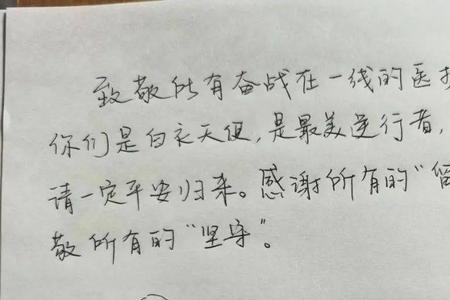 致敬所有奋战在一线的医
你们是白衣天使,是最美逆行者,
请一定平安归来。感谢所有的“留
敬所有的“坚守”。